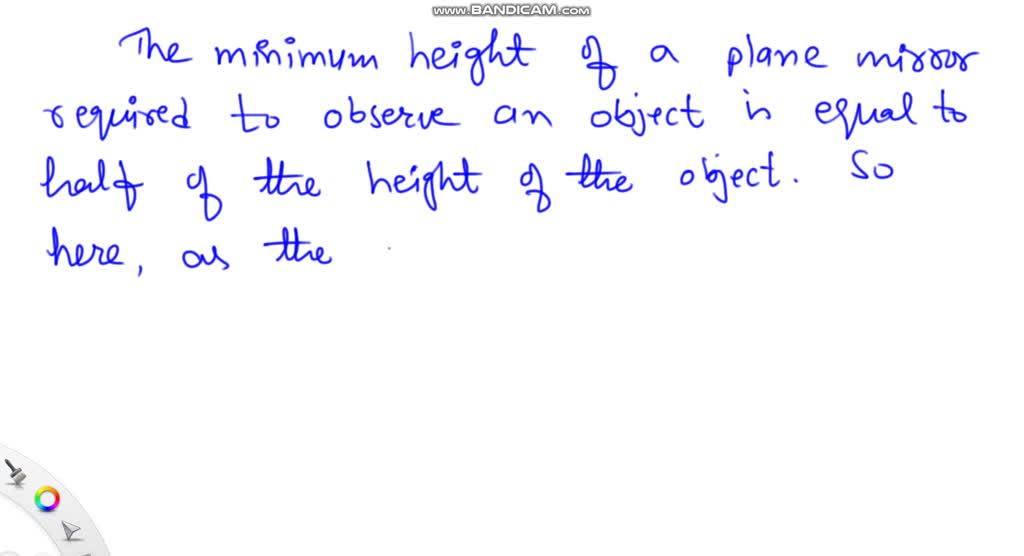 www.BANDICAM.com
The minimum height of a plane mirror
required to observe an object is equal to
half of the height of the object. So
here, as the